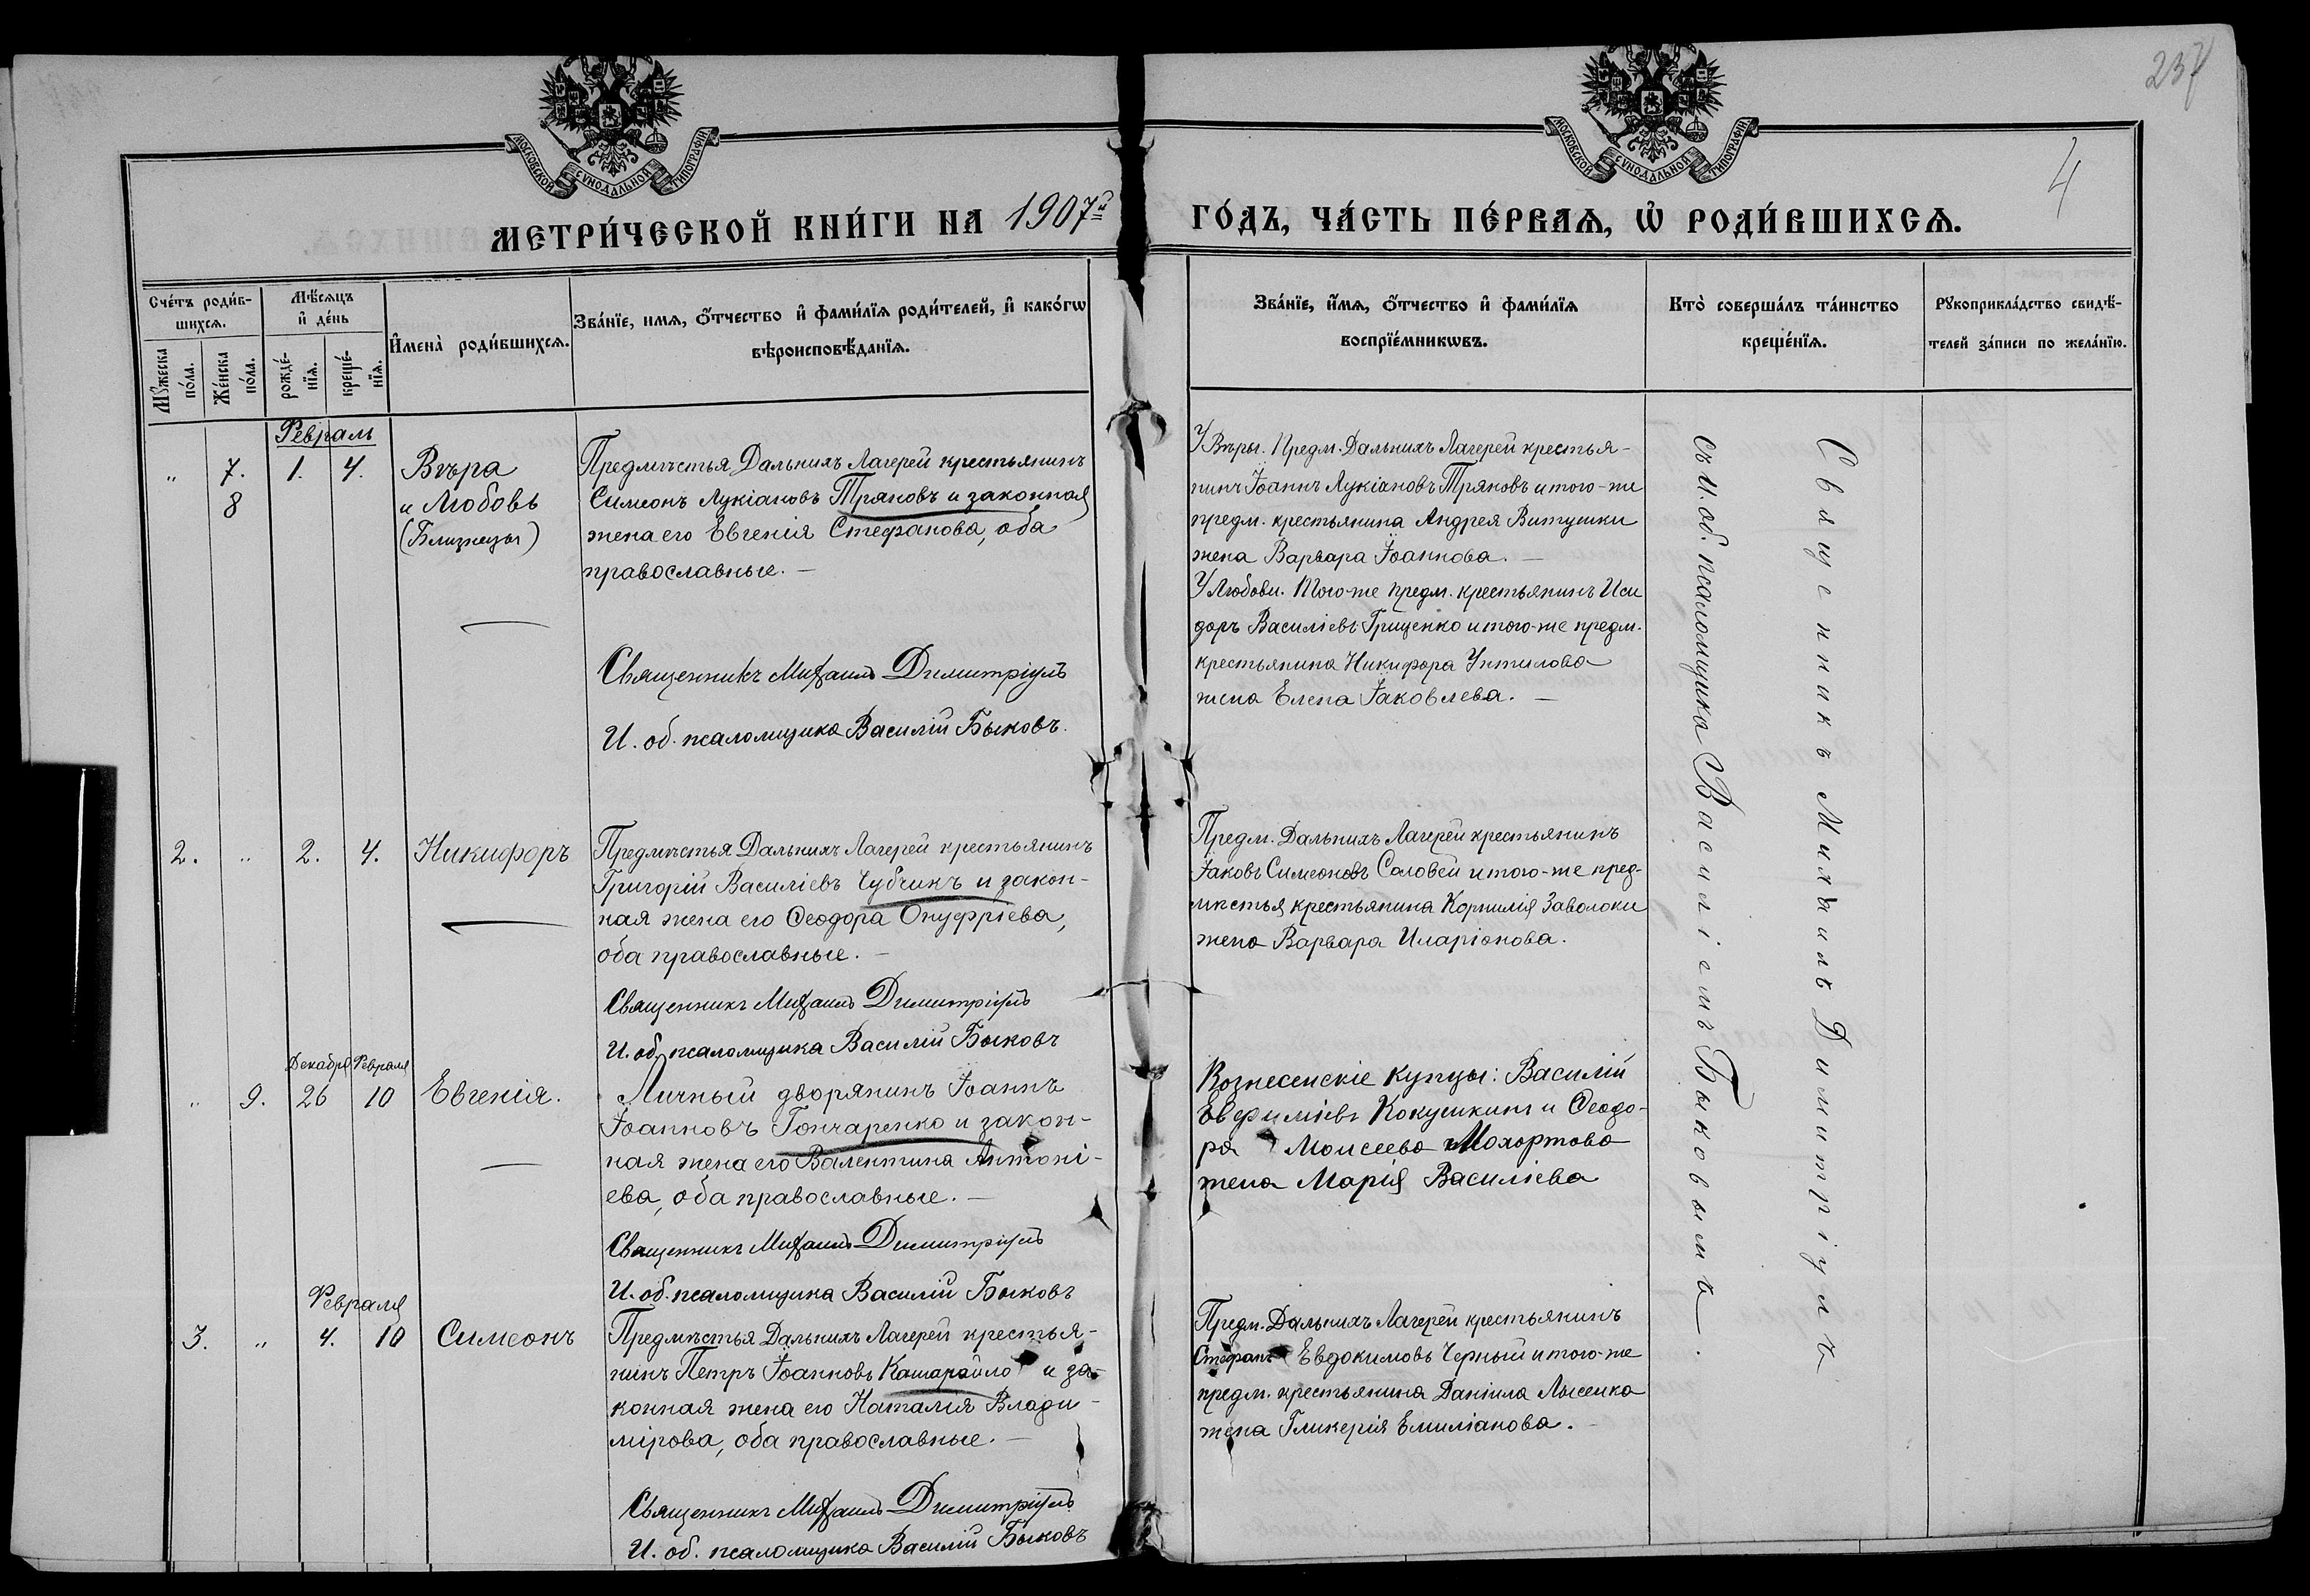 237
4
МОСКОВСКОЙ СѴНОДАЛЬНОЙ ТИПОГРАФІИ
МОСКОВСКОЙ СѴНОДАЛЬНОЙ ТИПОГРАФІИ
МЕТРИ́ЧЕСКОЙ КНИ́ГИ НА 1907й ГО́ДЪ, ЧА́СТЬ ПЕ́РВАѦ, Ѡ҆ РОДИ́ВШИХСѦ.
Сче́тъ роди́в-
шихсѧ.
Мꙋ́жеска
по́ла.
Же́нска
по́ла.
Мѣ́сѧцъ
и҆ де́нь
рожде́-
нїѧ.
креще́-
нїѧ.
И҆мена̀ роди́вшихсѧ.
Зва́нїе, имѧ, ѻ҆́тчество и҆ фами́лїѧ роди́телей, и҆ како́гѡ
вѣроисповѣ́данїѧ.
Зва́нїе, и҆́мѧ, ѻ҆́тчество и҆ фами́лїѧ
воспрїе́мникѡвъ.
Кто̀ соверша́лъ та́инство
креще́нїѧ.
Рꙋкоприкла́дство свидѣ́-
телей за́писи по жела́нїю.
Февраль
" 7. 1. 4. Вѣра
8 и Любовь
(Близнецы)
Предмѣстья Дальнихъ Лагерей крестьянинъ
Симеонъ Лукіановъ Тряновъ и законная
жена его Евгенія Стефанова, оба
православные. —
Священникъ Михаилъ Димитріулъ
И. об. псаломщика Василій Быковъ.
У Вѣры. Предм. Дальнихъ Лагерей крестья-
нинъ Іоаннъ Лукіановъ Тряновъ и того-же
предм. крестьянина Андрея Витушки
жена Варвара Іоаннова. —
У Любови. Того-же предм. крестьянинъ Иси
доръ Василіевъ Гриценко и того-же предм.
крестьянина Никифора Унтилова
жена Елена Іаковлева. —
2. " 2. 4. Никифоръ
Предмѣстья Дальнихъ Лагерей крестьянинъ
Григорій Василіевъ Чубчикъ и закон-
ная жена его Ѳеодора Онуфріева,
оба православные. —
Священникъ Михаилъ Димитріулъ
И. об. псаломщика Василій Быковъ
Предм. Дальнихъ Лагерей крестьянинъ
Іаковъ Симеоновъ Соловей и того-же пред-
мѣстья крестьянина Корнилія Заволоки
жена Варвара Иларіонова.
Декабря Февраля
" 9. 26 10 Евгенія.
Личный дворянинъ Іоаннъ
Іоанновъ Гончаренко и закон-
ная жена его Валентина Антоні-
ева, оба православные. —
Священникъ Михаилъ Димитріулъ
И. об. псаломщика Василій Быковъ
Вознесенскіе купцы: Василій
Евфиміевъ Кокушкинъ и Ѳеодо-
ра Моисеева Мохортова
жена Марія Василіева
Февраля
3. " 4. 10 Симеонъ
Предмѣстья Дальнихъ Лагерей крестья-
нинъ Петръ Іоанновъ Кашарайло и за-
конная жена его Наталія Влади-
мірова, оба православные. —
Священникъ Михаилъ Димитріулъ
И. об. псаломщика Василій Быковъ
Предм. Дальнихъ Лагерей крестьянинъ
Стефанъ Евдокимовъ Черный и того-же
предм. крестьянина Даніила Лысенка
жена Гликерія Емиліанова. —
Священникъ Михаилъ Димитріулъ
съ и. об. псаломщика Василіемъ Быковымъ.